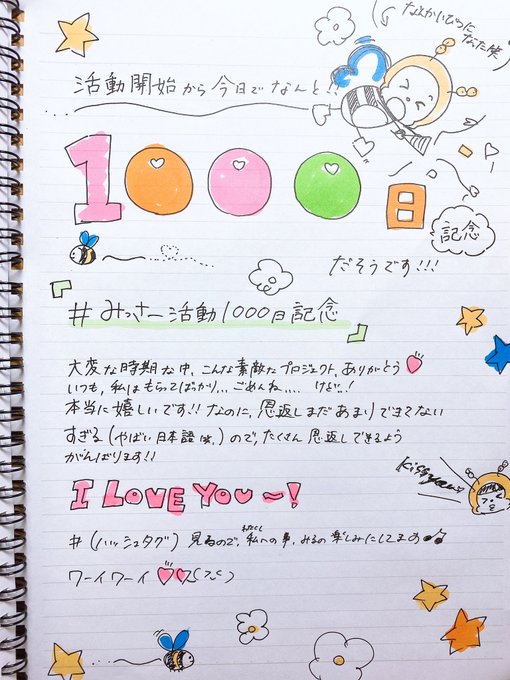 なんかいびつに
なった笑
活動開始から今日でなんと!!
1000日
記念
だそうです!!!
#みっさー活動1000日記念
大変な時期な中、こんな素敵なプロジェクト、ありがとう
いつも、私はもらってばっかり... ごめんね.... けど..!
本当に嬉しいです!! なのに、恩返しまだあまりできてない
すぎる(やばい日本語笑)ので、たくさん恩返しできるよう
がんばります!!
I LOVE YOU〜!
#(ハッシュタグ)見るので、私への事、みるの楽しみにしてます♪
わたくし
ワーイワーイ